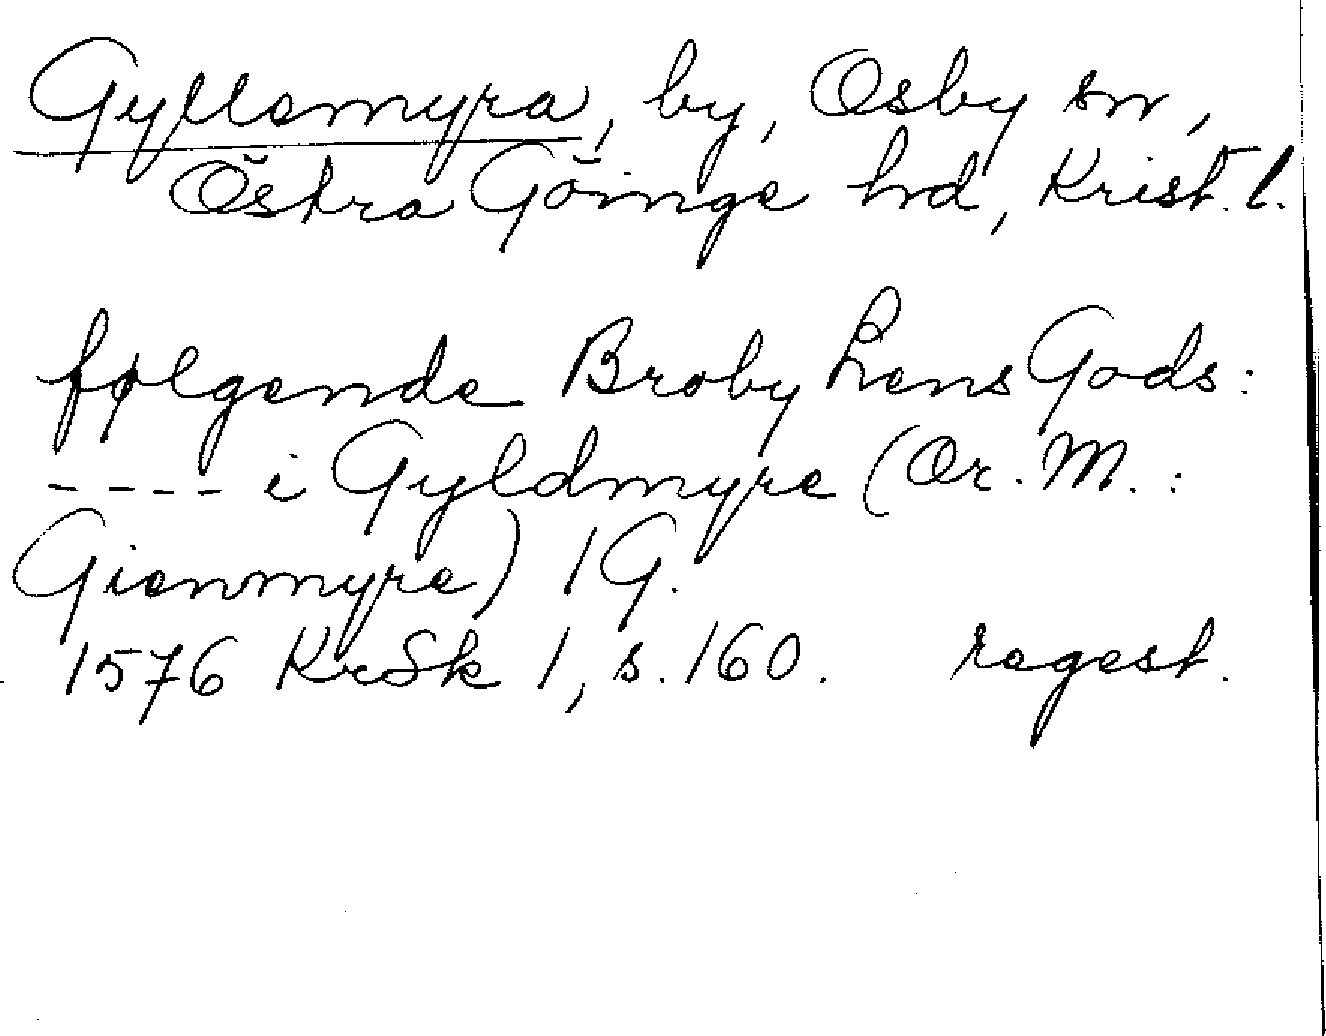 Gyllemyra, by, Osby sn,
Östra Göinge hd, Krist. l.
følgende Broby Lens Gods:
---- i Gyldmyre (Or. M.:
Gienmyre) 1 G.
1576 KrSk 1, s. 160. regest.